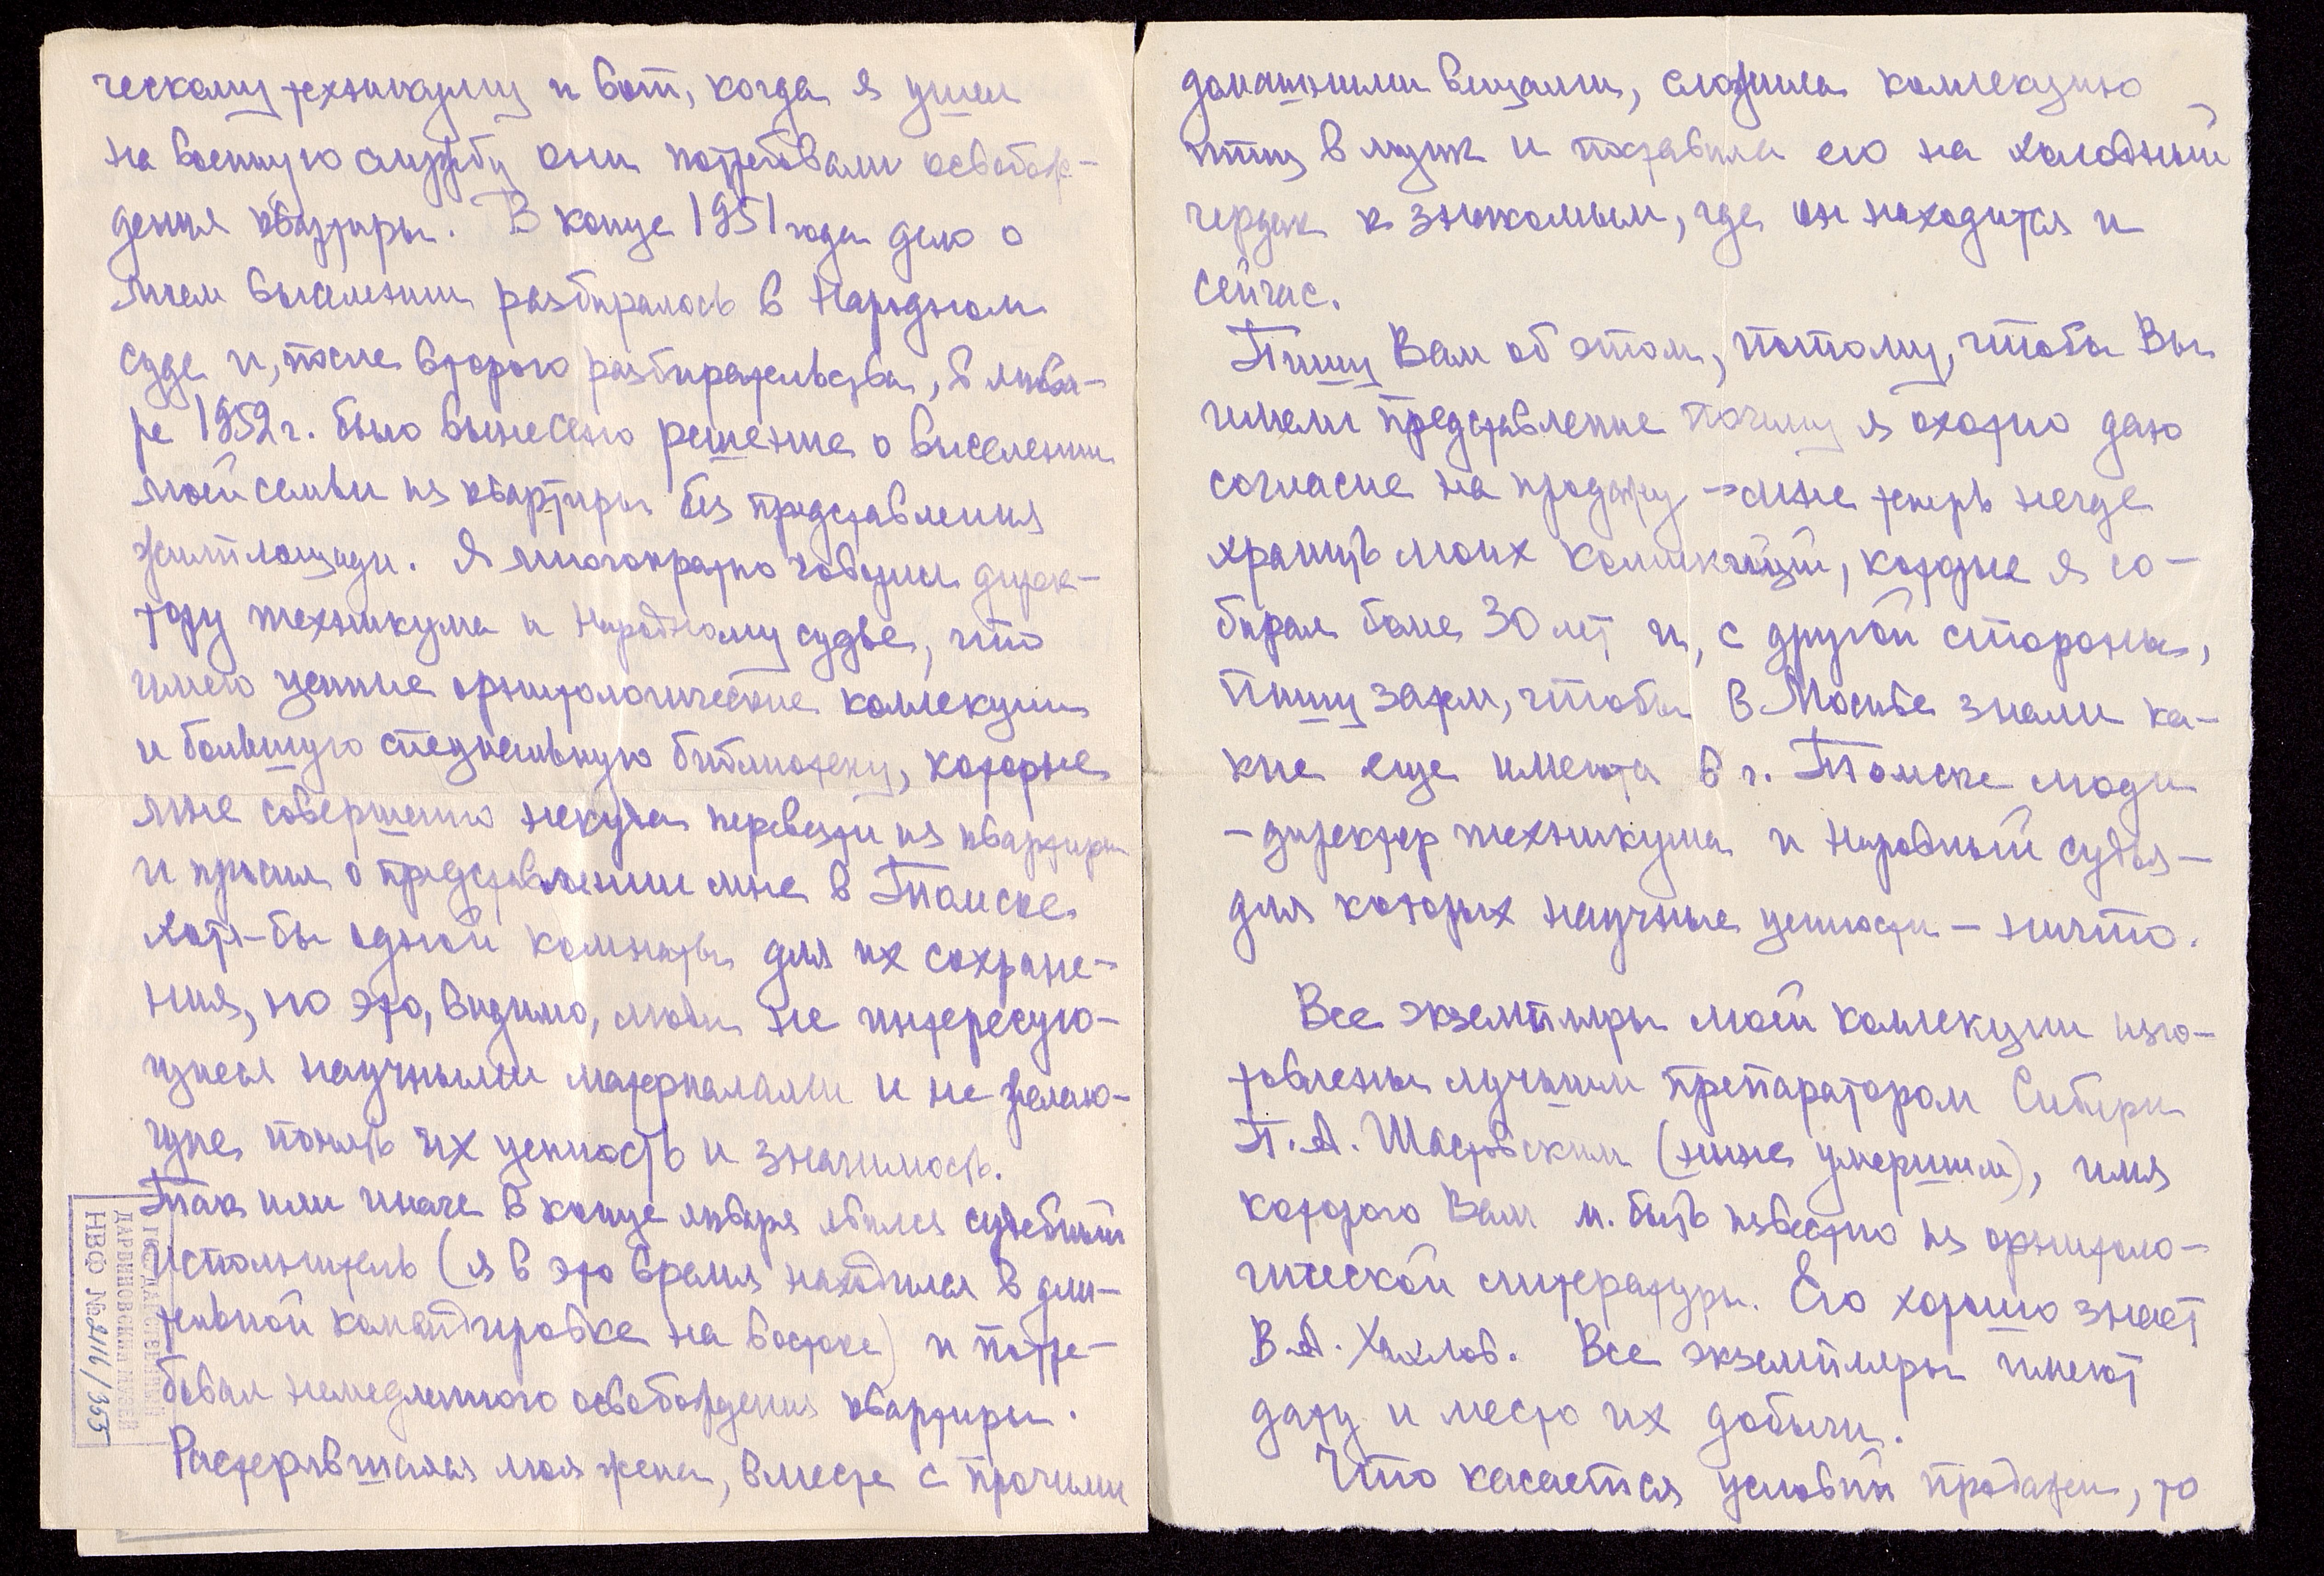 ческому техникуму и вот, когда я ушел
на военную службу они потребовали освобож-
дения квартиры. В конце 1951 года дело о
моем выселении разбиралось в Народном
суде и, после второго разбирательства, в янва-
ре 1952 г. было вынесено решение о выселении
моей семьи из квартиры без представления
жилплощади. Я многократно говорил дирек-
тору техникума и народному судье, что
имею ценные орнитологические коллекции
и большую специальную библиотеку, которые
мне совершенно некуда перевезти из квартиры
и просил о представлении мне в Томске
хотя-бы одной комнаты для их сохране-
ния, но это, видимо, люди не интересую-
щиеся научными материалами и не желаю-
щие понять их ценность и значимость.
Так или иначе в конце января явился судебный
исполнитель (я в это время находился в дли-
тельной командировке на востоке) и потре-
бовал немедленного освобождения квартиры.
Растерявшаяся моя жена, вместе с прочими
ГОСУДАРСТВЕННЫЙ
ДАРВИНОВСКИЙ МУЗЕЙ
НВФ № 2116/355
домашними вещами, сложила коллекцию
птиц в ящик и поставила его на холодный
чердак к знакомым, где он находится и
сейчас.
Пишу Вам об этом, потому, чтобы Вы
имели представление почему я охотно даю
согласие на продажу - мне теперь негде
хранить моих коллекций, которые я со-
бирал более 30 лет и, с другой стороны,
пишу затем, чтобы в Москве знали ка-
кие еще имеются в г. Томске люди
- директор техникума и народный судья -
для которых научные ценности - ничто.
Все экземпляры моей коллекции изго-
товлены лучшим препаратором Сибири
П.А. Шастовским (ныне умершим), имя
которого Вам м. быть известно из орнитоло-
гической литературы. Его хорошо знает
В.А. Хахлов. Все экземпляры имеют
дату и место их добычи.
Что касается условий продажи, то